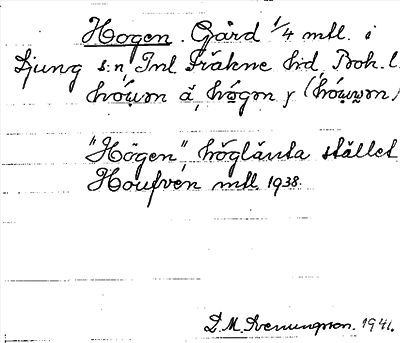 Hogen. Gård 1/4 mtl. i
Ljung s:n, Inl. Fräkne hd, Boh. l.
"Högen", höglänta stället
Houfven mtl. 1938.
D. M. Svenungsson. 1941.